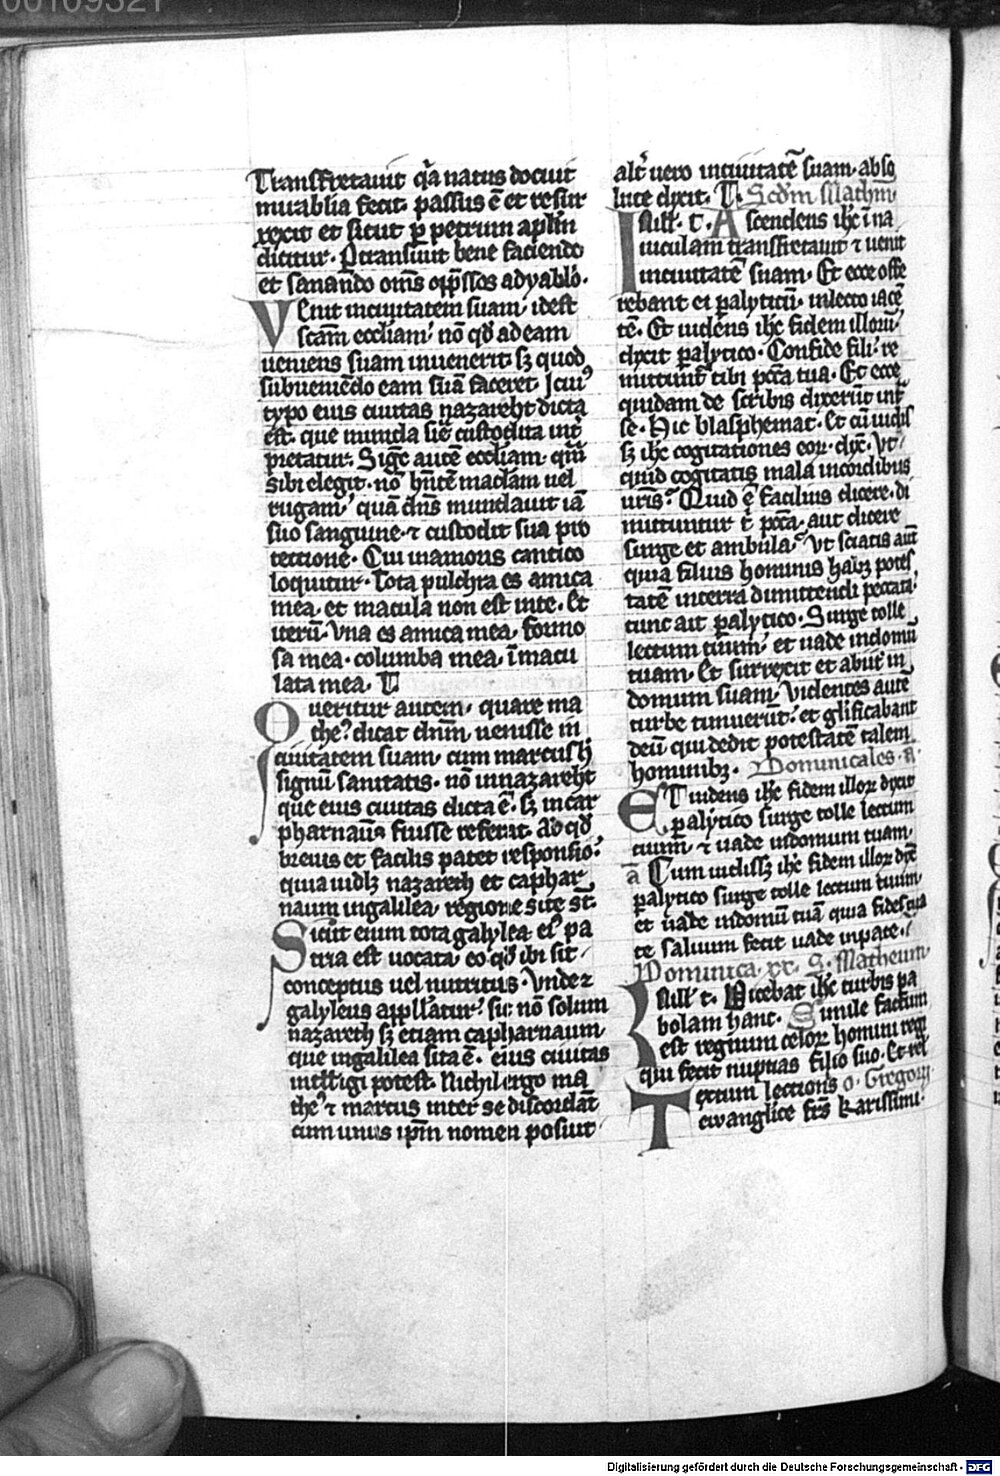 00109321
Transfretauit q̄a natus docuit
mirablia fecit. passus ē et resur
rexit et sicut ꝑ petrum aplm̄
dicitur. Ꝑtransiuit bene faciendo
et sanando om̄s oꝑssos adyablo.
Uenit inciuitatem suam. idest
scām eccliam. nō qd̄ ad eam
ueniens suam inuenerit sꝫ quod
subueniēdo eam suā faceret. Jcuiꝰ
typo eius ciuitas nazareht dicta
est. que munda siue custodita int̄
pretatur. Sigͣt autē eccliam. quā
sibi elegit. nō hn̄tē maclam uel
rugam. quā dn̄s mundauit iā
suo sanguine. ⁊ custodit sua pro
tectione. Cui inamoris cantico
loquitur. Tota pulchra es amica
mea. et macula non est inte. Et
iterū. Vna es amica mea. formo
sa mea. columba mea. īmacu
lata mea. T
Queritur autem. quare ma
the' dicat dn̄m uenisse in
ciuitatem suam. cum marcus h̄
signū sanitatis. nō innazareht
que eius ciuitas dicta ē. sꝫ in car
pharnaū fuisse referat. Ad qd̄
breuis et facilis patet responsio.
quia uidlꝫ nazareth et caphar
naum ingalilea regione site st̄.
Sicut enim tota galylea eiꝰ pa
tria est uocata. eo qd̄ ibi sit
conceptus uel nutritus. Vnde ⁊
galyleus appllatur. sic nō solum
nazareth sꝫ etiam capharnaum
que ingalilea sita ē. eius ciuitas
intelligi potest. Nichil ergo ma
the' ⁊ marcus inter se discordāt
cum unus ipm̄ nomen posuit
alt̄ uero inciuitatē suam. abso
lute dixit. T. Scdm Mathm
Jn ill. t. Ascendens ihc̄ ī na
uiculam transfretauit ⁊ uenit
inciuitatē suam. Et ecce offe
rebant ei ꝑalyticū. inlecto iacē
tē. Et uidens ihc̄ fidem illorū.
dixit ꝑalytico. Confide fili. re
mittunt̄ tibi pc̄ca tua. Et ecce
quidam de scribis dixerūt int̄
se. Hic blasphemat. Et cū uidis
sꝫ ihc̄ cogitationes eoꝝ. dix̄. Vt
quid cogitatis mala incordibus
ur̄is. Quid ē facilius dicere. di
mittuntur t̄ pc̄ca. aut dicere
surge et ambula. Vt sciatis aūt
quia filius hominis habꝫ potes
tatē interra dimittendi peccata.
tunc ait ꝑalytico. Surge tolle
lectum tuum. et uade indomū
tuam. Et surrexit et abiit in
domum suam. Videntes autē
turbe timuerūt. et glificabant
deū qui dedit potestatē talem
hominibꝫ. Dominicales. a
Et uidens ihc̄ fidem illoꝝ dixit
ꝑalytico surge tolle lectum
tuum. ⁊ uade indomum tuam.
a Cum uidissꝫ ihc̄ fidem illoꝝ dix̄
ꝑalytico surge tolle lectum tuum.
et uade indomū tuā quia fides tua
te saluum fecit uade inpace.
Dominica. xx. S. Matheum
Jn ill t. Dicebat ihc̄ turbis pa
bolam hanc. Simile factum
est regnum celoꝝ homini regi
qui fecit nuptias filio suo. Et rel
Textum lectionis o. Gregorij
ewanglice fr̄s karissimi.
Digitalisierung gefördert durch die Deutsche Forschungsgemeinschaft - DFG